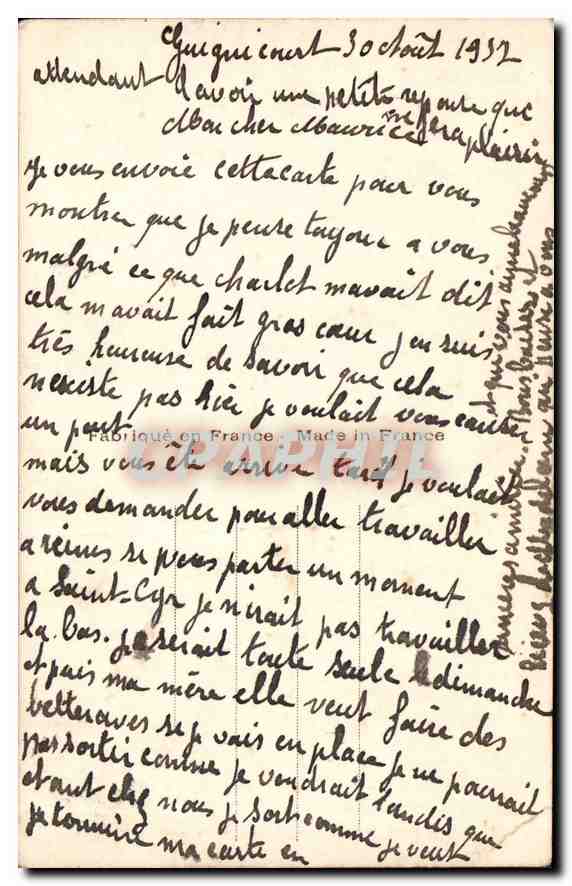 Guignicourt 30 Août 1932
Mon cher Maurice
Je vous envoie cette carte pour vous
montrer que je pense toujour a vous
malgré ce que charlot mavait dit
cela mavait fait gros cœur jen suis
très heureuse de savoir que cela
nexiste pas hier je voulait vous causer
un peut
Fabriqué en France. Made in France
CPAPHIL
mais vous ête arrive tard je voulait
vous demander pour aller travailler
a reims se vous parter un moment
a Saint-Cyr je nirait pas travailler
la. bas. je serait toute seule le dimanche
et puis ma mère elle veut faire des
betteraves se je vais en place je ne pourrait
pas sortir comme je voudrait tandis que
etant chez nous je sort comme je veut
je termine ma carte en
attendant
davoir une petite reponse que
me fera plaisir
et qui vous aime beaucoup
amicres amitier. Bons baisers et